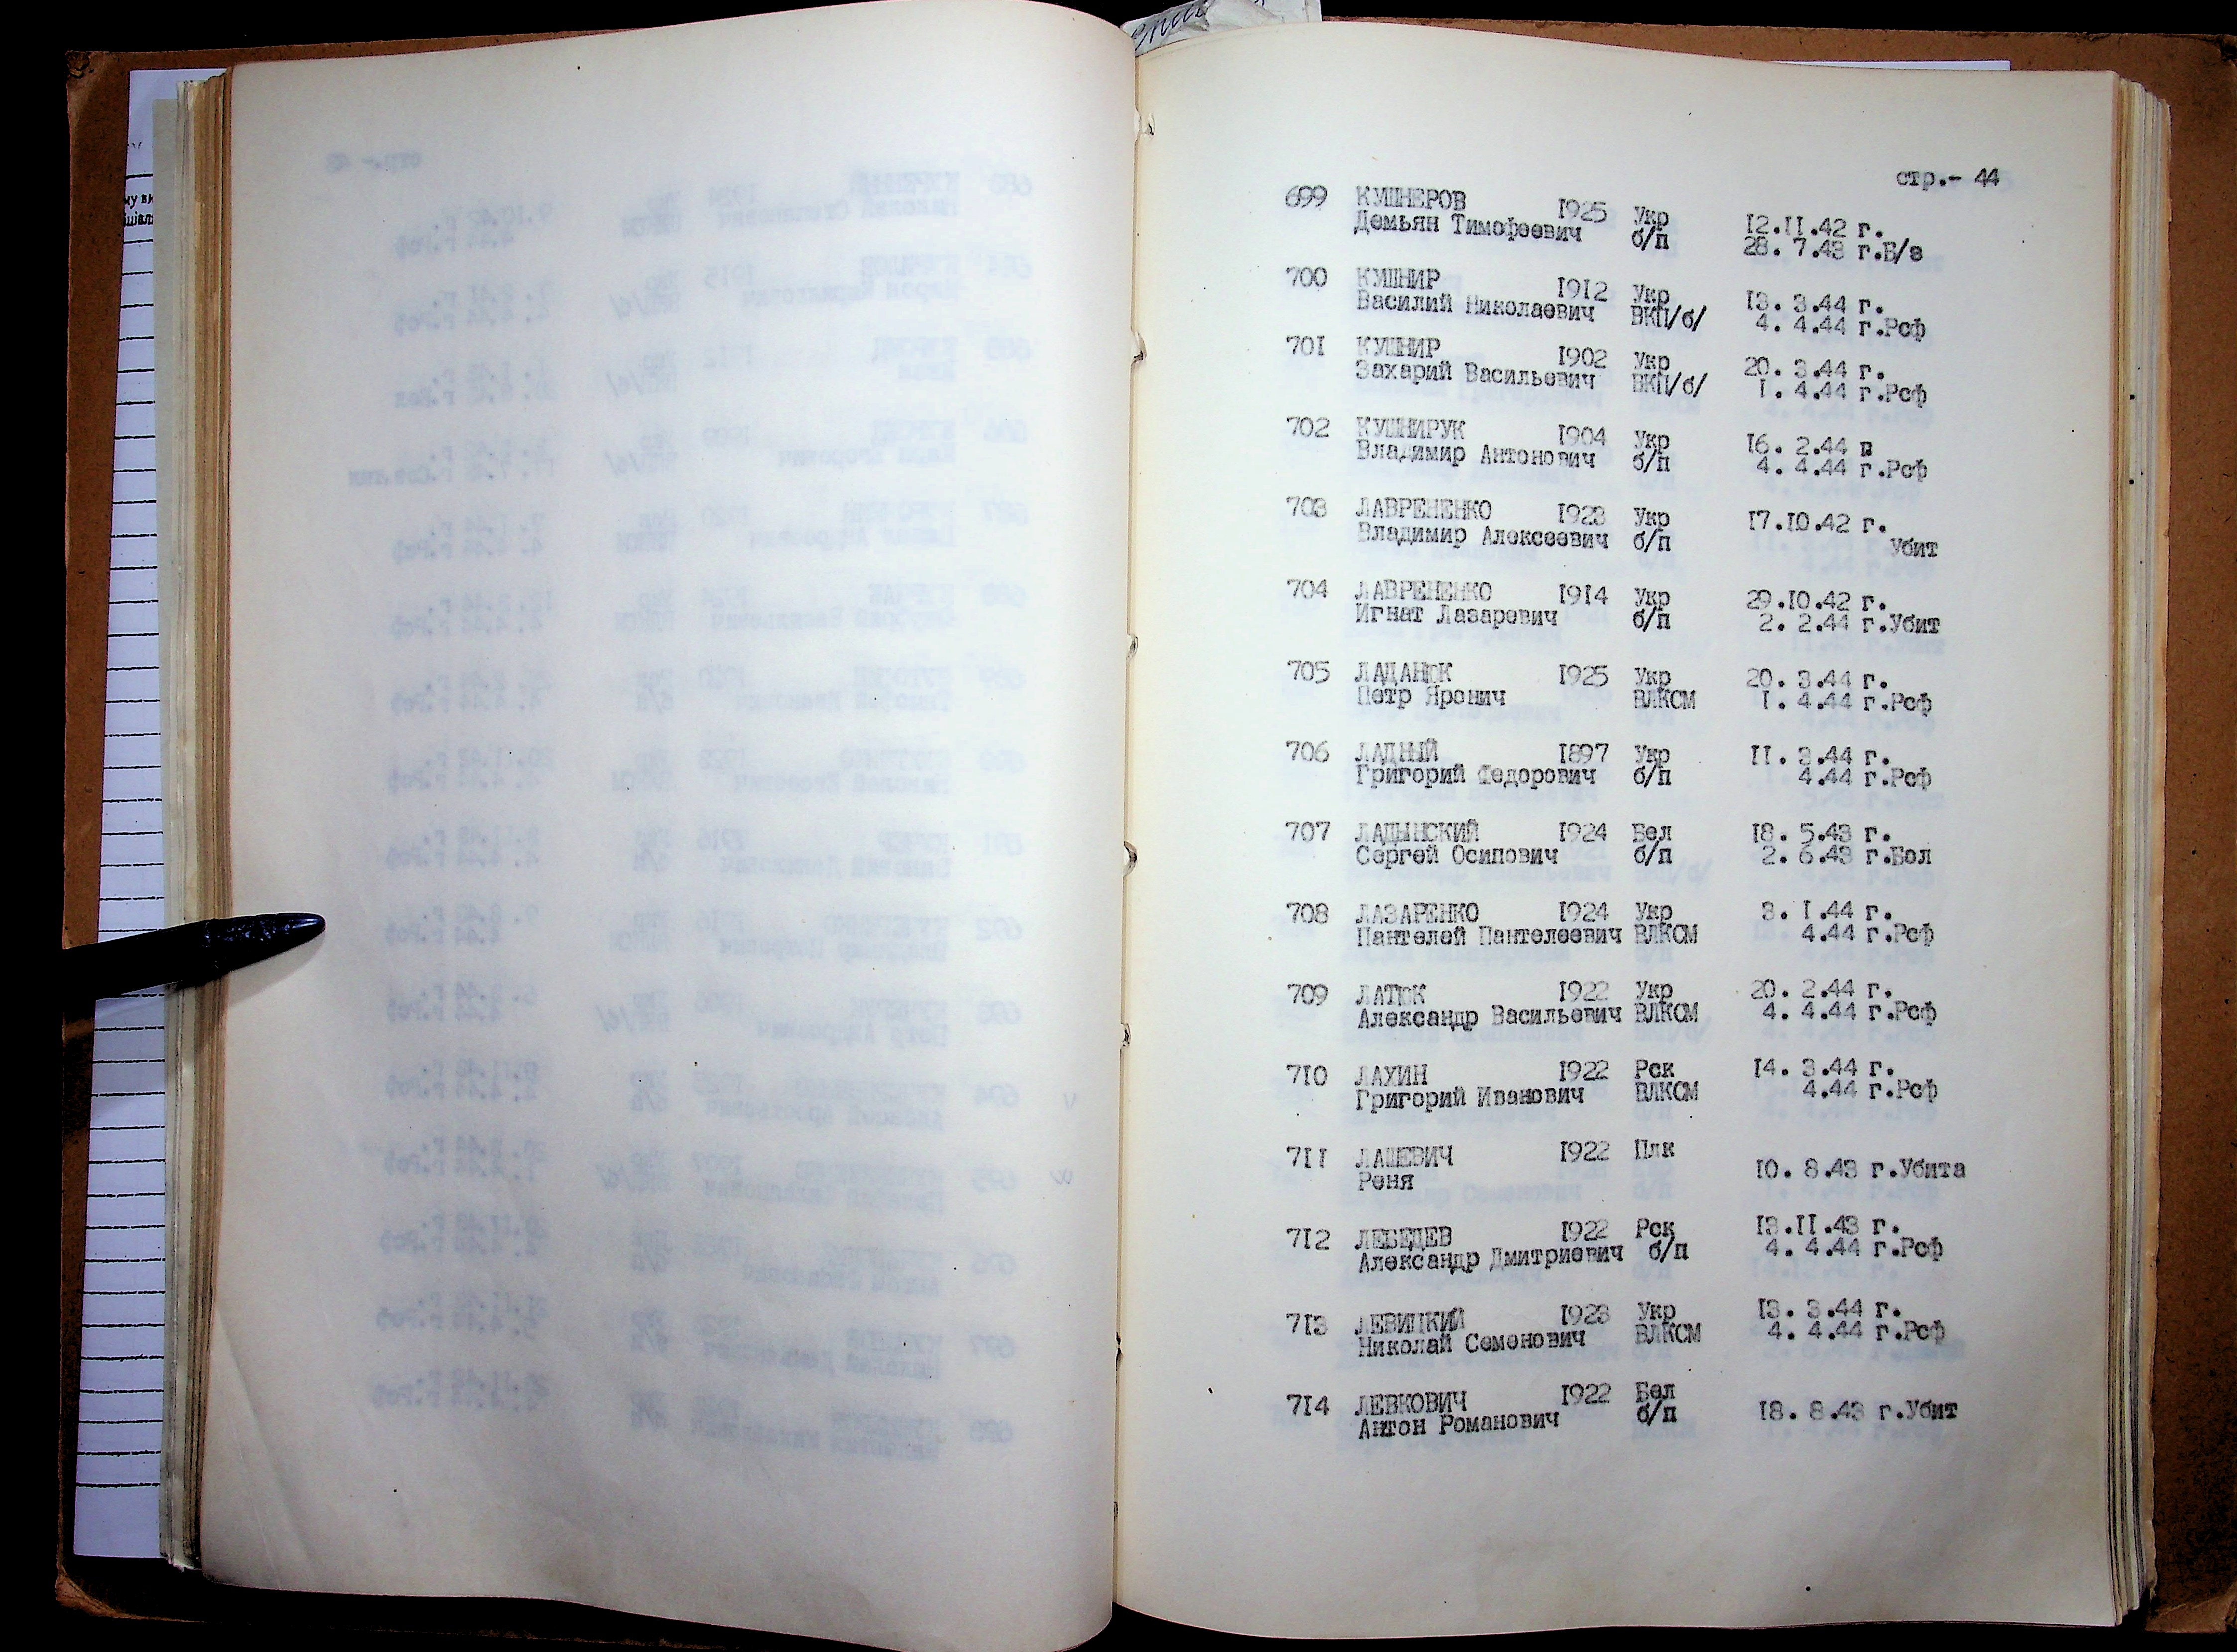 стр.- 44
699 КУШНЕРОВ 1925 Укр 12.11.42 г.
Демьян Тимофеевич б/п 28. 7.43 г.Б/з
700 КУШНИР 1912 Укр 13. 3.44 г.
Василий Николаевич ВКП/б/ 4. 4.44 г.Рсф
701 КУШНИР 1902 Укр 20. 3.44 г.
Захарий Васильевич ВКП/б/ 1. 4.44 г.Рсф
702 КУШНИРУК 1904 Укр 16. 2.44 г
Владимир Антонович б/п 4. 4.44 г.Рсф
703 ЛАВРЕНЕНКО 1923 Укр 17.10.42 г.
Владимир Алексеевич б/п Убит
704 ЛАВРЕНЕНКО 1914 Укр 29.10.42 г.
Игнат Лазаревич б/п 2. 2.44 г.Убит
705 ЛАДАНЮК 1925 Укр 20. 3.44 г.
Петр Яронич ВЛКСМ 1. 4.44 г.Рсф
706 ЛАДНЫЙ 1897 Укр 11. 3.44 г.
Григорий Федорович б/п 4.44 г.Рсф
707 ЛАДЫНСКИЙ 1924 Бел 18. 5.43 г.
Сергей Осипович б/п 2. 6.43 г.Бол
708 ЛАЗАРЕНКО 1924 Укр 3. 1.44 г.
Пантелей Пантелеевич ВЛКСМ 4.44 г.Рсф
709 ЛАТЮК 1922 Укр 20. 2.44 г.
Александр Васильевич ВЛКСМ 4. 4.44 г.Рсф
710 ЛАХИН 1922 Рск 14. 3.44 г.
Григорий Иванович ВЛКСМ 4.44 г.Рсф
711 ЛАШЕВИЧ 1922 Плк
Реня 10. 8.43 г.Убита
712 ЛЕБЕДЕВ 1922 Рск 13.11.43 г.
Александр Дмитриевич б/п 4. 4.44 г.Рсф
713 ЛЕВИЦКИЙ 1923 Укр 13. 3.44 г.
Николай Семенович ВЛКСМ 4. 4.44 г.Рсф
714 ЛЕВКОВИЧ 1922 Бел
Антон Романович б/п 18. 8.43 г.Убит